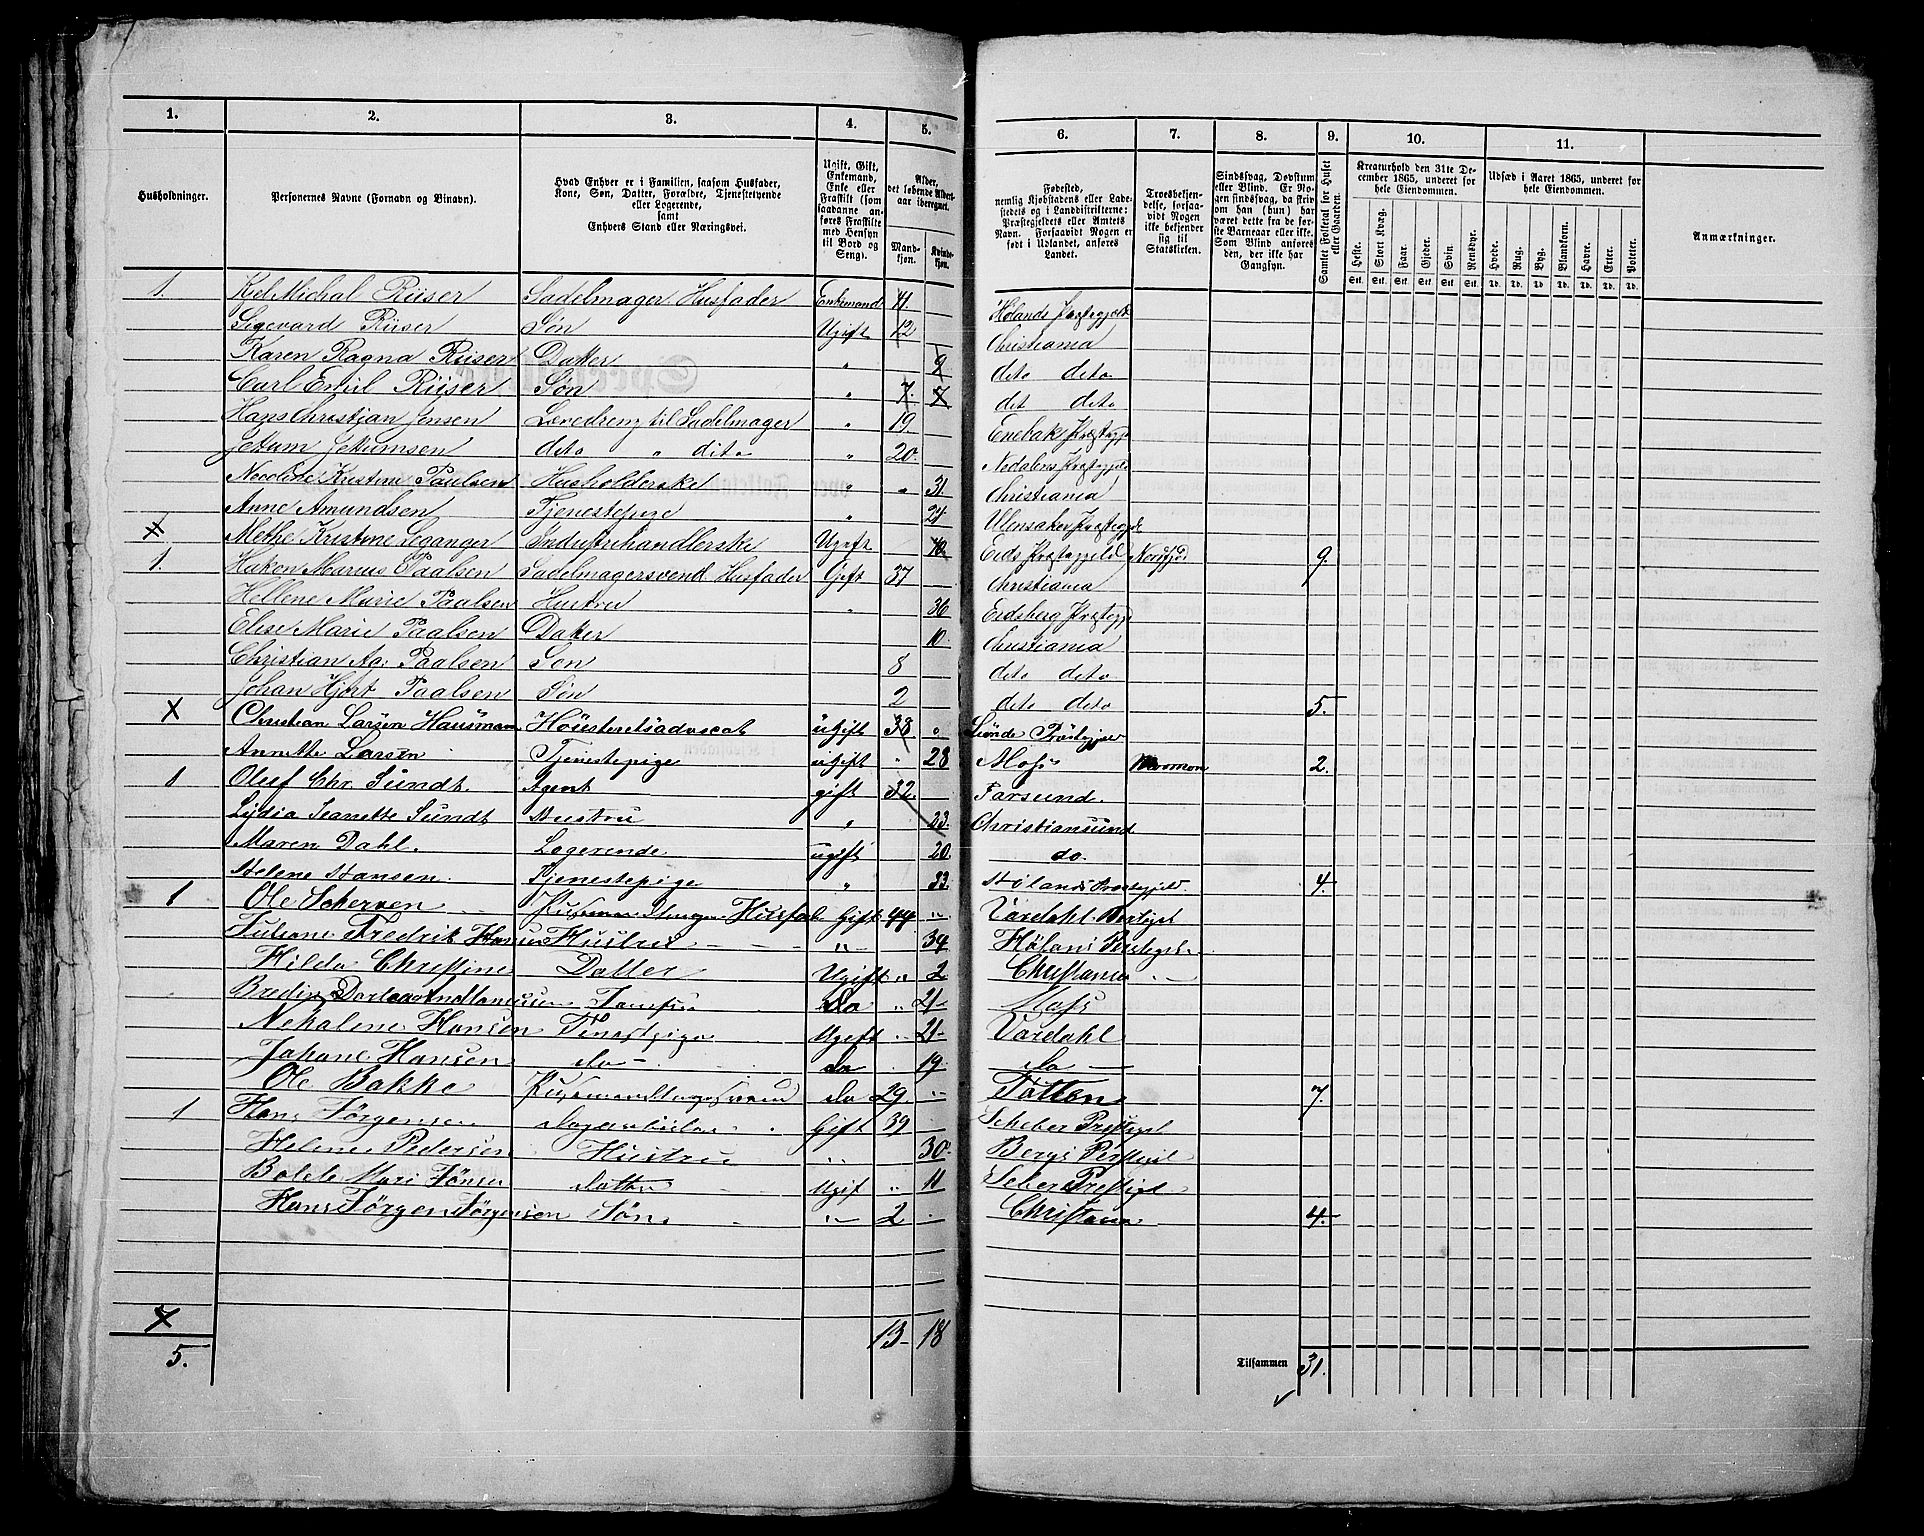 1. 2. 3. 4. 5. 6. 7. 8. 9. 10. 11.
Husholdninger.
Personernes Navne (Fornavn og Binavn).
Hvad Enhver er i Familien, saasom Husfader, Kone, Søn, Datter, Forældre, Tjenestetyende eller Logerende, samt Enhvers Stand eller Næringsvei.
Ugift, Gift, Enkemand, Enke eller Fraskilt (som saadanne anføres Fraskilte med Hensyn til Bord og Seng).
Alder, det løbende Aldersaar iberegnet.
Mandkjøn. Kvindekjøn.
Fødested, nemlig Kjøbstadens eller Ladestedets og i Landdistrikterne: Præstegjeldets eller Amtets Navn. Forsaavidt Nogen er født i Udlandet, anføres Landet.
Troesbekjendelse, forsaavidt Nogen ikke bekjender sig til Statskirken.
Sindssvag, Døvstum eller Blind. Er Nogen sindssvag, da skrives om han (hun) har været dette fra de første Barneaar eller ikke. Som Blind anføres den, der ikke har Gangsyn.
Samlet Folketal for Huset eller Gaarden.
Kreaturhold den 31te December 1865, underet for hele Eiendommen.
Heste. Stort Kvæg. Faar. Gjeder. Svin. Rensdyr.
Stk. Stk. Stk. Stk. Stk. Stk.
Udsæd i Aaret 1865, underet for hele Eiendommen.
Hvede. Rug. Byg. Blandkorn. Havre. Erter. Poteter.
Td. Td. Td. Td. Td. Td. Td.
Anmærkninger.
1. Kjel Michal Riiser Sadelmager Husfader Enkemand 41 Hølands Præstegjeld
Sigevard Riiser Søn Ugift 12 Christiania
Karen Ragna Riiser Datter " 9 deto deto
Carl Emil Riiser Søn " 7. 7 det deto
Hans Christjan Jensen Læredreng til Sadelmager " 19. Enebaks Præstegje
deto " dito " 20. Præstegjeld
Nicoline Kristine Paulsen Husholderske " " 31. Christiania
Anne Amundsen Tjenestepige " 24 Ulensaker Præstegje
X Methe Kristine Leganger Industrihandlerske Ugift 40 Eids Præstegjeld Nordfjod 9.
1. Hakon Marius Paalsen Sadelmagersvend Husfader Gift 37 Christiania
Hellene Marie Paalsen Hustru " 36 Eidsberg Præstegje
Elise Marie Paalsen Datter 10. Christiania
Christian Paalsen Søn 8 deto deto
Johan Hjort Paalsen Søn 2 deto deto 5.
X Christian Larsen Hausmann Høiesteretsadvocat ugift 38 "
Annette Larsen Tjenestepige ugift " 28 Moss Mormon 2.
1 Oluf Chr. Sundt. Agent gift 32. Farsund.
Lydia Jeanette Sundt Hustru " 23. Christiansund
Maren Dahl. Logerende ugift 20. do.
Helene Hansen. Tjenestepige " 33. Hølands Præstegjeld. 4.
1 Ole Scherven Husfad Gift 44 " Vardahl
Juliane Fredrik Hansen Hustru " 34
Hilda Christine Datter Ugift " 2 Christiania
Do " 21 Moss
Hansen Ugift " 21- Vardahl
Johane Hansen do - do . 19. Do —
Ole Bakke do 29 " Totten 7.
1 Hans Jørgensen Gift 39
Helene Pedersen Hustru " 30.
Bolete Mari Jønsen Datter Ugif " 11
Hans Jørgen Jørgensen Søn. " 2 Christiania 4.
7 13- 18
5. Tilsammen 31.